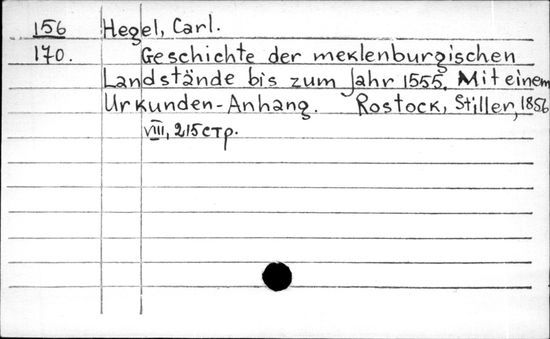 156 Hegel, Carl.
170. Geschichte der meklenburgischen
Landstände bis zum Jahr 1555. Mit einem
Urkunden-Anhang. Rostock, Stiller, 1856
VIII, 215 стр.